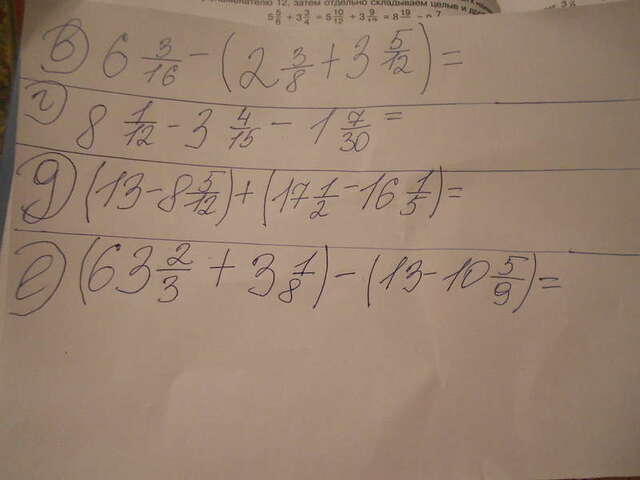 знаменателю 12, затем отдельно складываем целые и
5 5/6 + 3 3/4 = 5 10/12 + 3 9/12 = 8 19/12
в) 6 3/16 - (2 3/8 + 3 5/12) =
г) 8 1/12 - 3 4/15 - 1 7/30 =
д) (13 - 8 5/12) + (17 1/2 - 16 1/5) =
е) (63 2/3 + 3 1/8) - (13 - 10 5/9) =